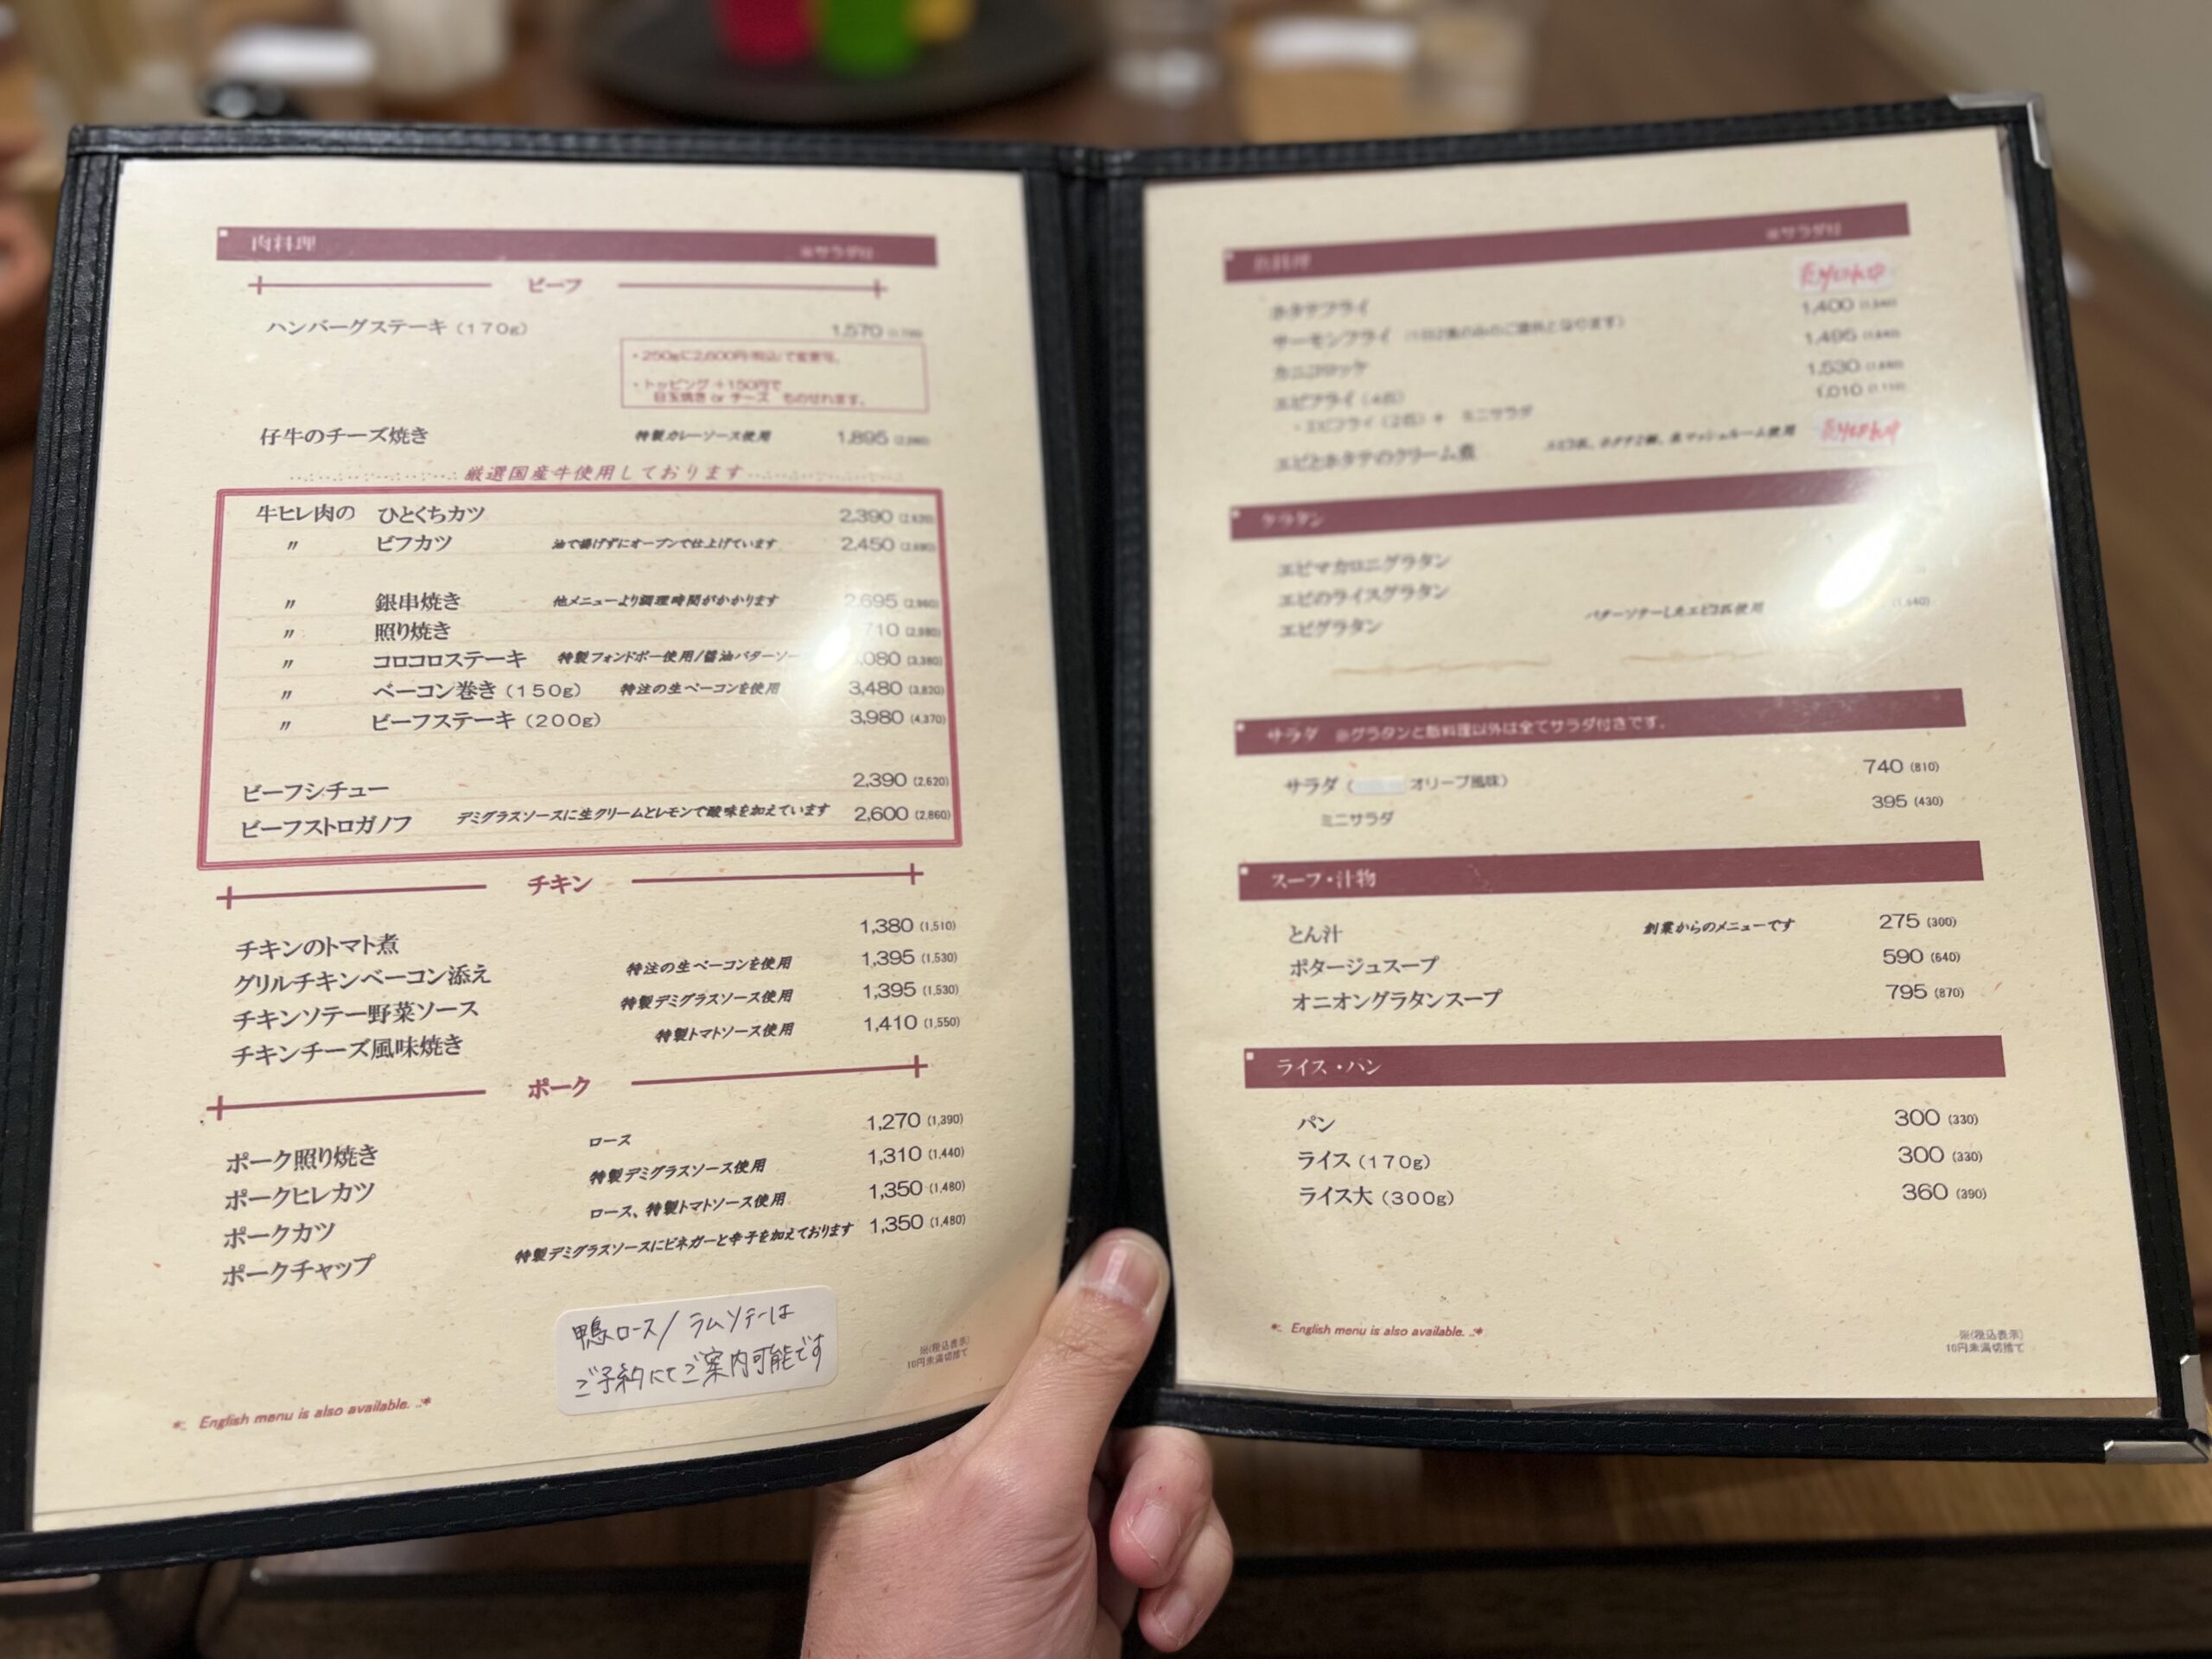 肉料理 ※サラダ付
ビーフ
ハンバーグステーキ（170g） 1,570
・250gに2,600円(税込)で変更可。
・トッピング＋150円で
目玉焼き or チーズ ものせれます。
仔牛のチーズ焼き 特製カレーソース使用 1,895
厳選国産牛使用しております
牛ヒレ肉の ひとくちカツ 2,390
〃 ビフカツ 油で揚げずにオーブンで仕上げています 2,450
〃 銀串焼き 他メニューより調理時間がかかります 2,695 (2,960)
〃 照り焼き 710 (2,980)
〃 コロコロステーキ 特製フォンドボー使用/醤油バターソー 080 (3,380)
〃 ベーコン巻き（150g） 特注の生ベーコンを使用 3,480 (3,820)
〃 ビーフステーキ（200g） 3,980 (4,370)
ビーフシチュー 2,390 (2,620)
ビーフストロガノフ デミグラスソースに生クリームとレモンで酸味を加えています 2,600 (2,860)
チキン
チキンのトマト煮 1,380 (1,510)
グリルチキンベーコン添え 特注の生ベーコンを使用 1,395 (1,530)
チキンソテー野菜ソース 特製デミグラスソース使用 1,395 (1,530)
チキンチーズ風味焼き 特製トマトソース使用 1,410 (1,550)
ポーク
ポーク照り焼き ロース 1,270 (1,390)
ポークヒレカツ 特製デミグラスソース使用 1,310 (1,440)
ポークカツ ロース、特製トマトソース使用 1,350 (1,480)
ポークチャップ 特製デミグラスソースにビネガーと辛子を加えております 1,350 (1,480)
鴨ロース/ラムソテーは
ご予約にてご案内可能です
※(税込表示)
10円未満切捨て
*:. English menu is also available. .:*
※サラダ付
ホタテフライ
1,400
サーモンフライ 1,495
カニコロッケ 1,530
エビフライ（4匹） 1,010
・エビフライ（2匹）＋ ミニサラダ
エビとホタテのクリーム煮
グラタン
エビマカロニグラタン
エビのライスグラタン
エビグラタン バターソテーしたエビ3匹使用 (1,640)
サラダ ※グラタンと飯料理以外は全てサラダ付きです。
サラダ（ オリーブ風味） 740 (810)
ミニサラダ 395 (430)
スープ・汁物
とん汁 創業からのメニューです 275 (300)
ポタージュスープ 590 (640)
オニオングラタンスープ 795 (870)
ライス・パン
パン 300 (330)
ライス（170g） 300 (330)
ライス大（300g） 360 (390)
*:. English menu is also available. .:*
※(税込表示)
10円未満切捨て